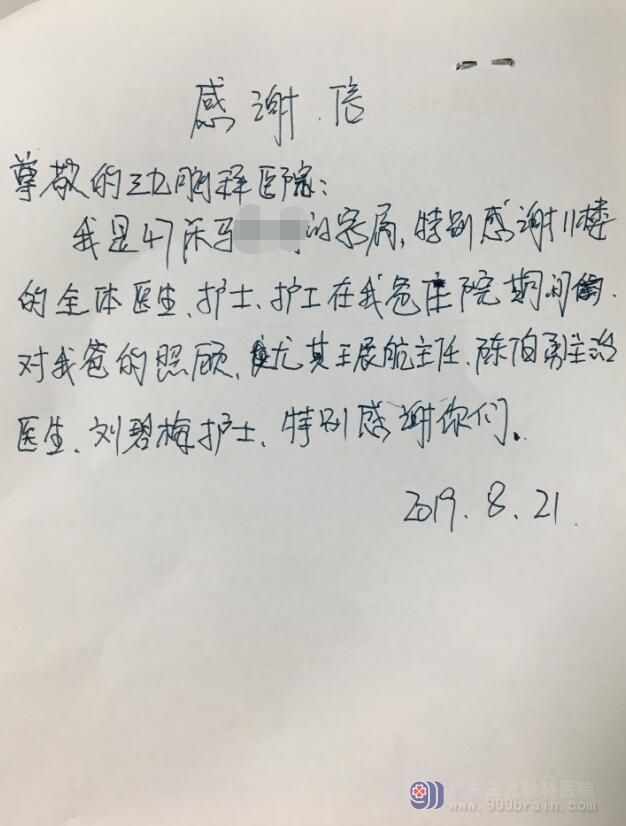 感谢信
尊敬的三九脑科医院:
我是47床马 的家属,特别感谢11楼
的全体医生、护士、护工在我爸住院期间
对我爸的照顾,尤其王展航主任、陈伯勇主治
医生、刘碧梅护士、特别感谢你们。
2019.8.21.
广东三九脑科医院
www.999brain.com